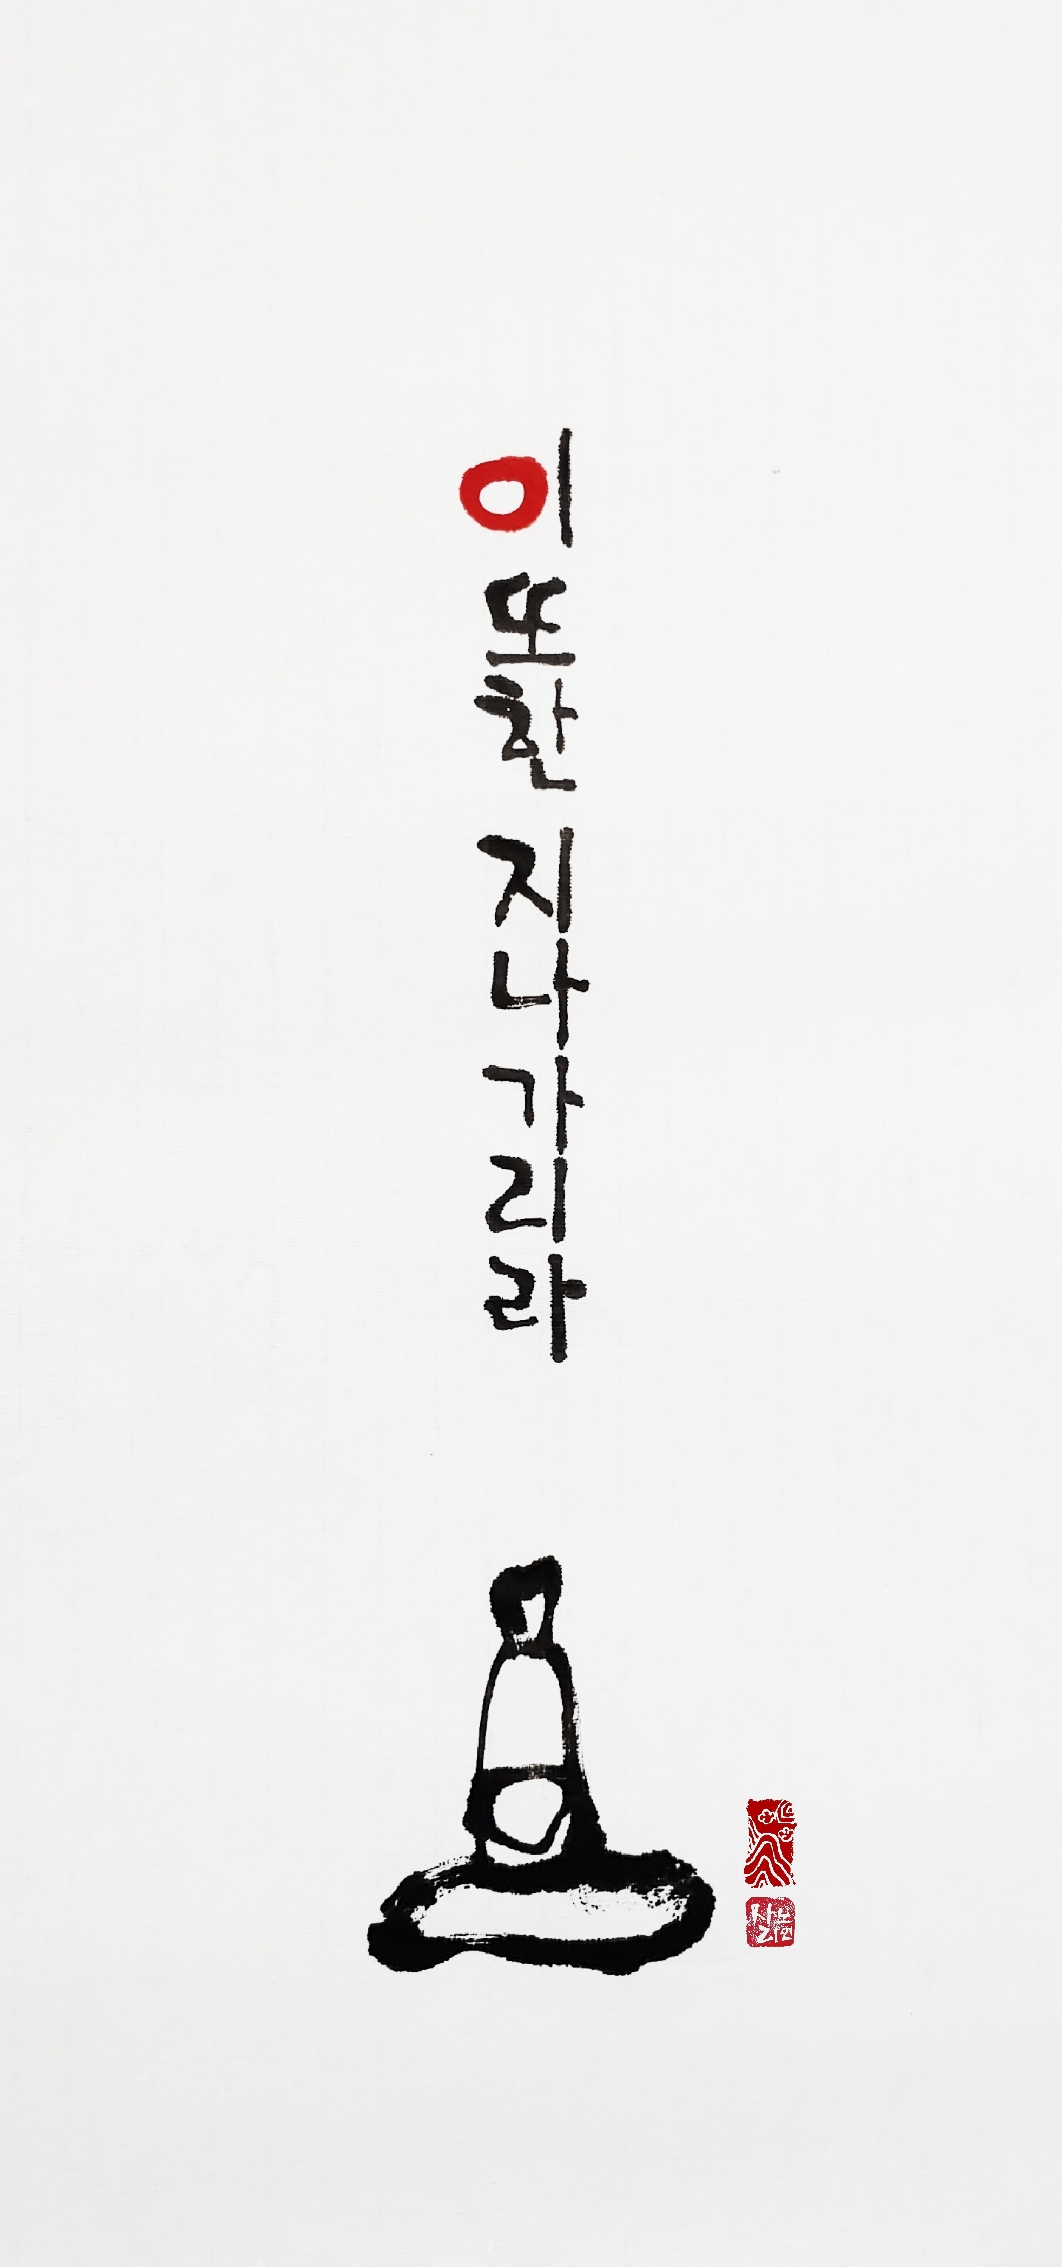 이 또한 지나가리라